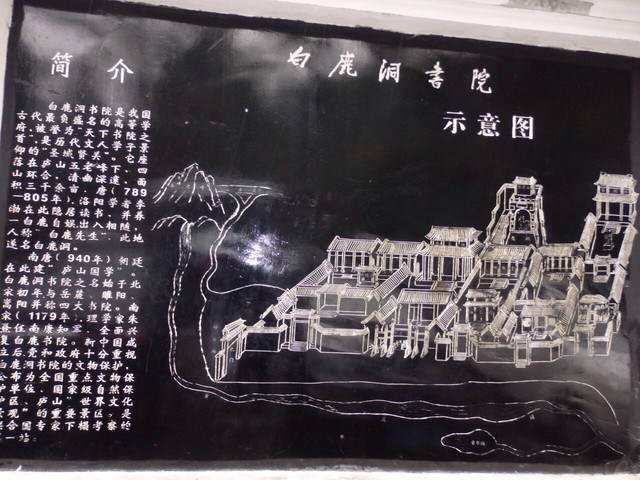 简介
白鹿洞书院
示意图
白鹿洞书院是我国
古代最负盛名的高等学
府，被誉为“天下书院之
首”，是历代文人学子景
仰的“圣域贤关”。它座
落在庐山五老峰下，四面
山环合，清幽深邃，面
积三千余亩。唐（789
—805年），洛阳学者李
渤在此隐居读书，并养
一白鹿自娱，出入相随，
人称“白鹿先生”，此地
遂名白鹿洞。
南唐（940年）朝廷
在此建“庐山国学”。
白鹿洞书院之名始于北
宋初年与岳麓、睢阳、
嵩阳并称四大书院。南
宋（1179年），理学家朱
熹任南康知军，全面兴
复白鹿书院。新中国成
立后党和政府十分重视
白鹿洞书院的文物保护，
公布为全国重点文物保
自然保
庐山“世界文化
景观”的重要景区。是
联合国专家
一站。